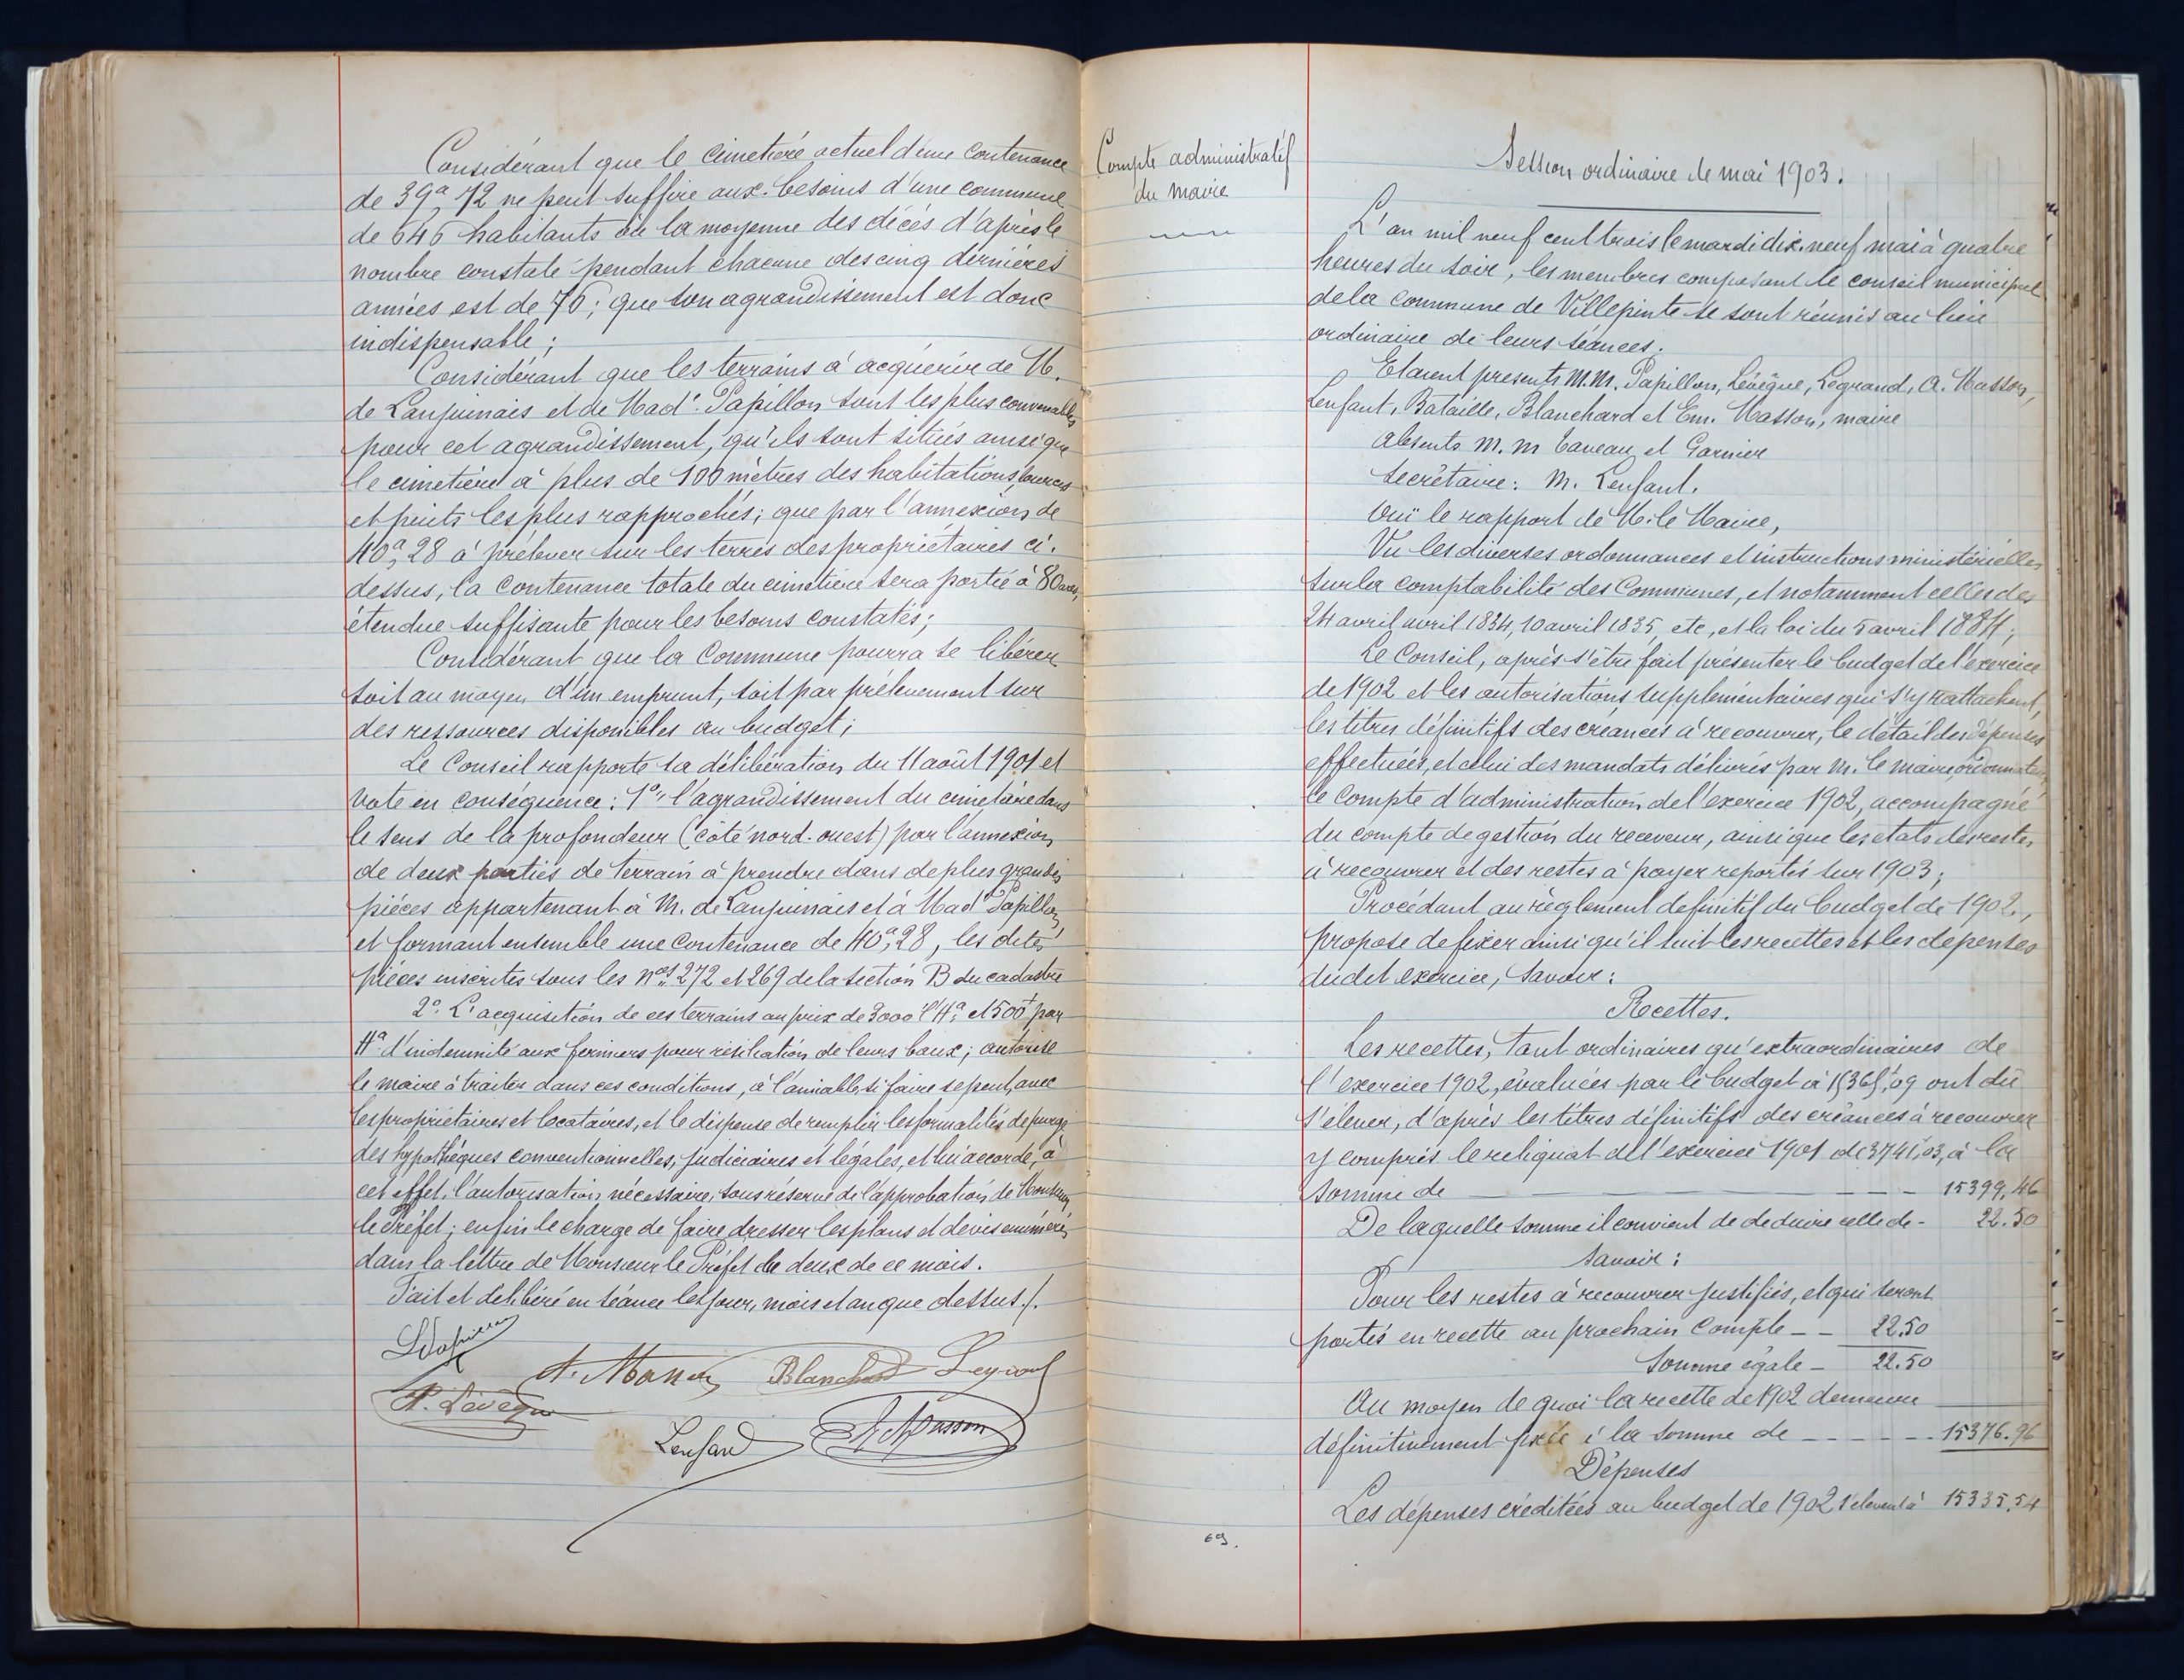 Considérant que le cimetière actuel d'une contenance
de 39a,72 ne peut suffire aux besoins d'une commune
de 646 habitants où la moyenne des décès d'après le
nombre constaté pendant chacune des cinq dernières
années est de 76; que son agrandissement est donc
indispensable;
Considérant que les terrains à acquérir de M.
de Lanjuinais et de Made Papillon sont les plus convenables
pour cet agrandissement, qu'ils sont situés ainsi que
le cimetière à plus de 100 mètres des habitations, sources
et puits les plus rapprochés; que par l'annexion de
40a,28 à prélever sur les terres des propriétaires ci-
dessus, la contenance totale du cimetière sera portée à 80 ares,
étendue suffisante pour les besoins constatés;
Considérant que la Commune pourra se libérer
soit au moyen d'un emprunt, soit par prélèvement sur
des ressources disponibles au budget;
Le Conseil rapporte sa délibération du 11 août 1901 et
vote en conséquence: 1o l'agrandissement du cimetière dans
le sens de la profondeur (côté nord-ouest) par l'annexion
de deux parties de terrain à prendre dans de plus grandes
pièces appartenant à M. de Lanjuinais et à Made Papillon,
et formant ensemble une contenance de 40a,28, les dites
pièces inscrites sous les nos 272 et 269 de la section B du cadastre
2o. L'acquisition de ces terrains au prix de 3000f l'Ha et 500f par
Ha d'indemnité aux fermiers pour résiliation de leurs baux; autorise
le maire à traiter dans ces conditions, à l'amiable si faire se peut, avec
les propriétaires et locataires, et le dispense de remplir les formalités de purge
des hypothèques conventionnelles, judiciaires et légales, et lui accorde, à
cet effet, l'autorisation nécessaire, sous réserve de l'approbation de Monsieur
le Préfet; enfin le charge de faire dresser les plans et devis énumérés
dans la lettre de Monsieur le Préfet du deux de ce mois.
Fait et délibéré en séance les jour, mois et an que dessus./.
A. Masson Blanchard Legrand
P. Lévêque
Lenfant Masson
Compte administratif
du maire
69.
Session ordinaire de mai 1903.
L'an mil neuf cent trois le mardi dix-neuf mai à quatre
heures du soir, les membres composant le conseil municipal
de la Commune de Villepinte se sont réunis au lieu
ordinaire de leurs séances.
Etaient présents M.M. Papillon, Lévêque, Legrand, A. Masson,
Lenfant, Bataille, Blanchard et Em. Masson, maire
Absents M. M Taveau et Garnier
Secrétaire: M. Lenfant.
Ouï le rapport de M. le Maire,
Vu les diverses ordonnances et instructions ministérielles
sur la comptabilité des Communes, et notamment celles des
24 avril avril 1834, 10 avril 1835, etc, et la loi du 5 avril 1884;
Le Conseil, après s'être fait présenter le budget de l'exercice
de 1902 et les autorisations supplémentaires qui s'y rattachent,
les titres définitifs des créances à recouvrer, le détail des dépenses
effectuées, et celui des mandats délivrés par M. le maire ordonnateur,
le compte d'administration de l'exercice 1902, accompagné
du compte de gestion du receveur, ainsi que les états des restes
à recouvrer et des restes à payer reportés sur 1903;
Procédant au règlement définitif du budget de 1902,
propose de fixer ainsi qu'il suit les recettes et les dépenses
dudit exercice, savoir:
Recettes.
Les recettes, tant ordinaires qu'extraordinaires de
l'exercice 1902, évaluées par le budget à 15365f,09 ont dû
s'élever, d'après les titres définitifs des créances à recouvrer
y compris le reliquat de l'exercice 1901 de 3741f,03, à la
somme de 15399,46
De laquelle somme il convient de déduire celle de - 22.50
Savoir:
Pour les restes à recouvrer justifiés, et qui seront
portés en recette au prochain Compte - - 22.50
Somme égale - 22.50
Au moyen de quoi la recette de 1902 demeure
définitivement fixée à la somme de - - - - 15376.96
Dépenses
Les dépenses créditées au budget de 1902 s'élèvent à 15335,54